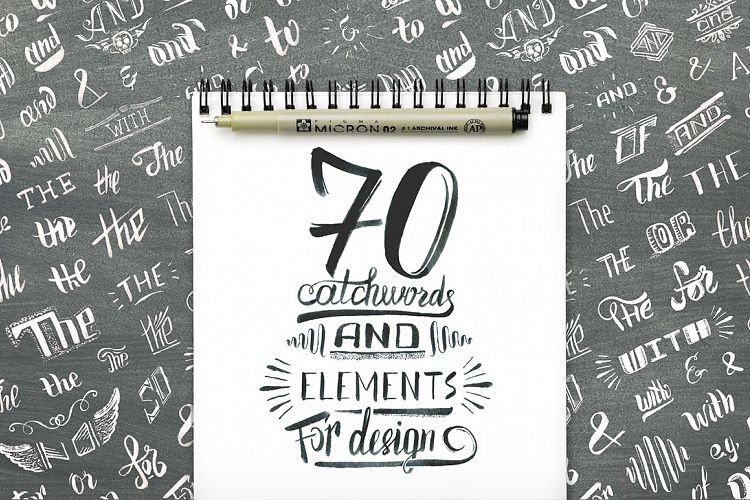 PIGMA
MICRON 02 #1 ARCHIVAL INK AP
70
catchwords
AND
ELEMENTS
For design
and
AND
and
to
&
to
and
AND
and
&
WITH
and
THE
the
The
the
the
the
the
THE
The
the
The
the
SO
&
or
for
AND
&
OF
AND
The
THE
The
THE
OR
the
The
for
WITH
&
with
with
&
e.g.